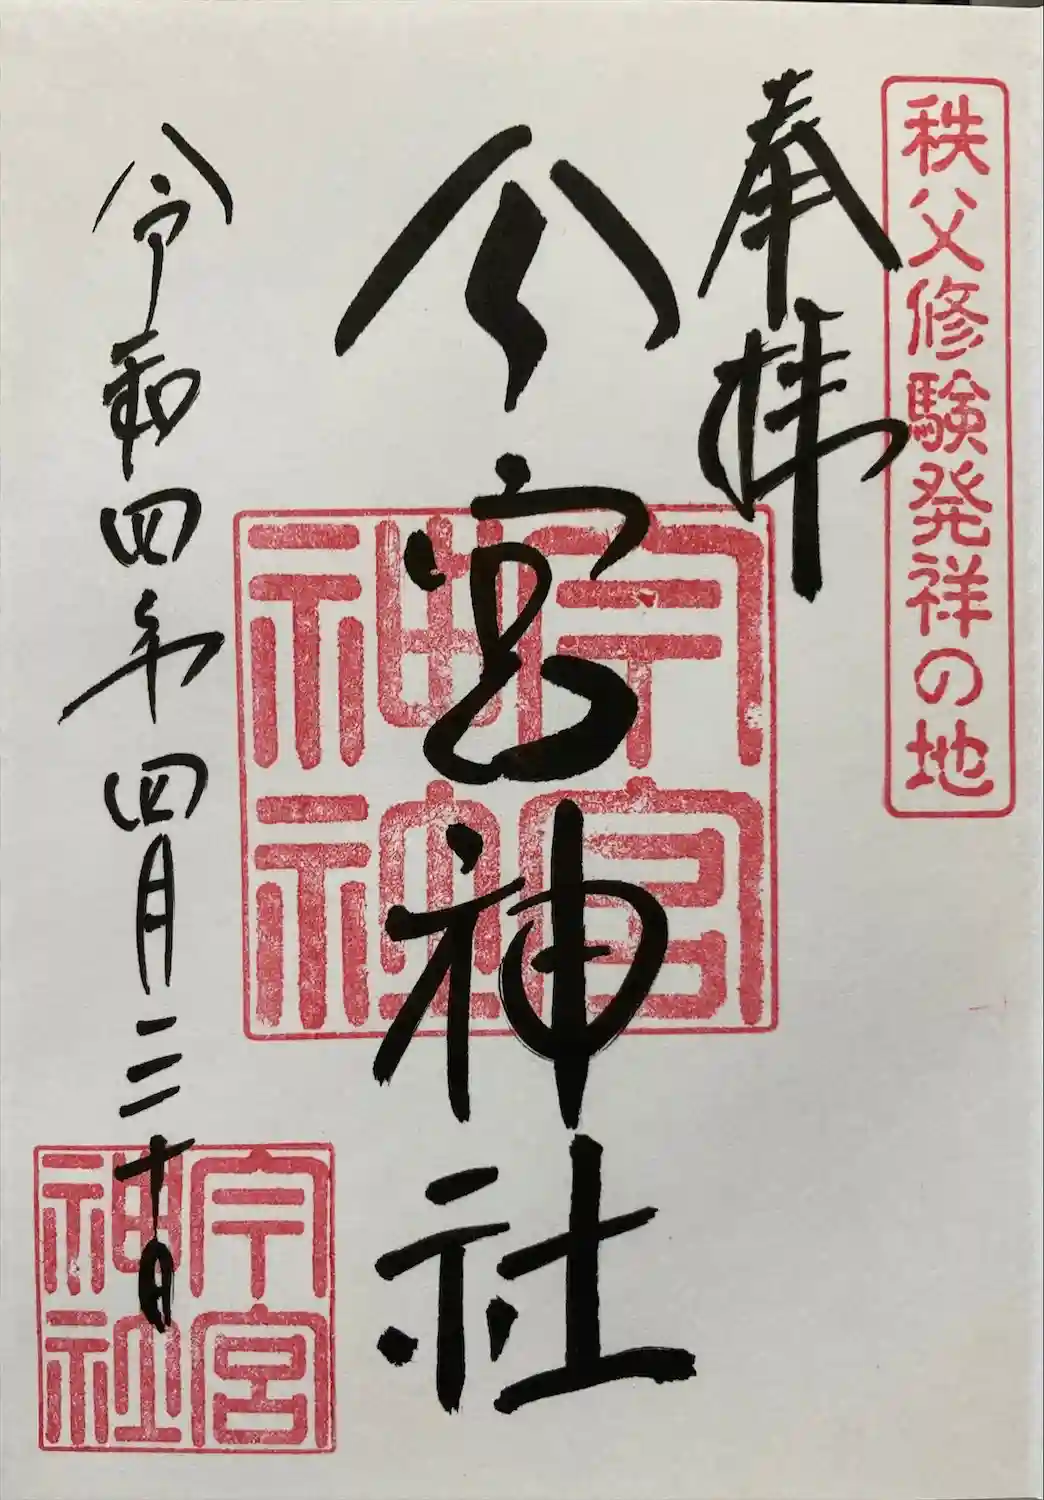 秩父修験発祥の地
奉拝
今宮神社
今宮
神社
令和四年四月三十日
今宮
神社